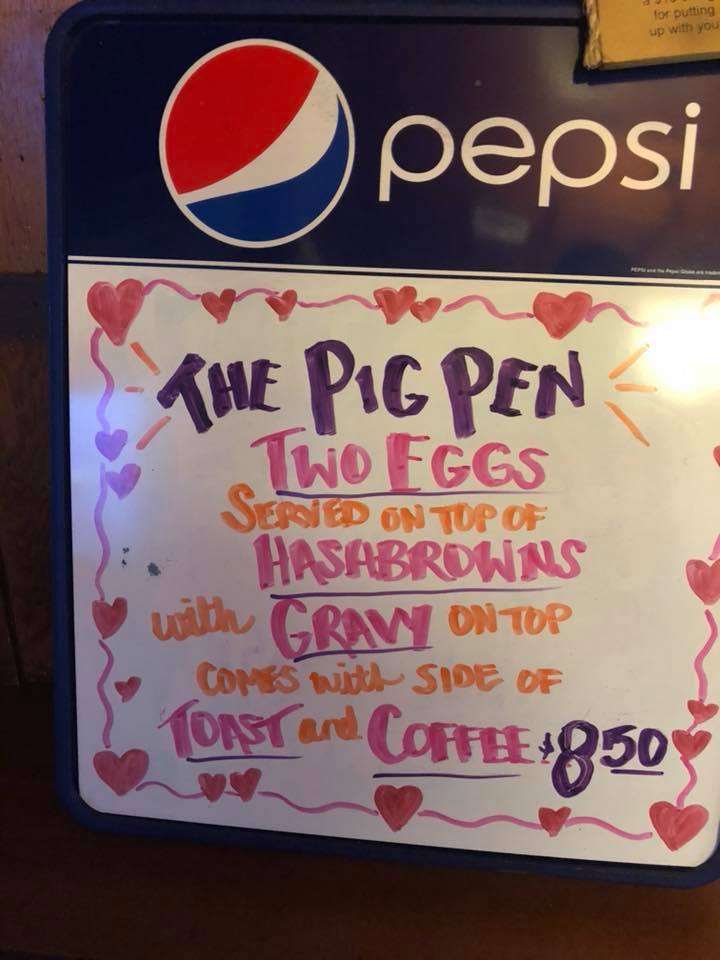 for putting
up with you
pepsi
THE PIG PEN
TWO EGGS
SERVED ON TOP OF
HASHBROWNS
with GRAVY ON TOP
COMES with SIDE OF
TOAST and COFFEE $850